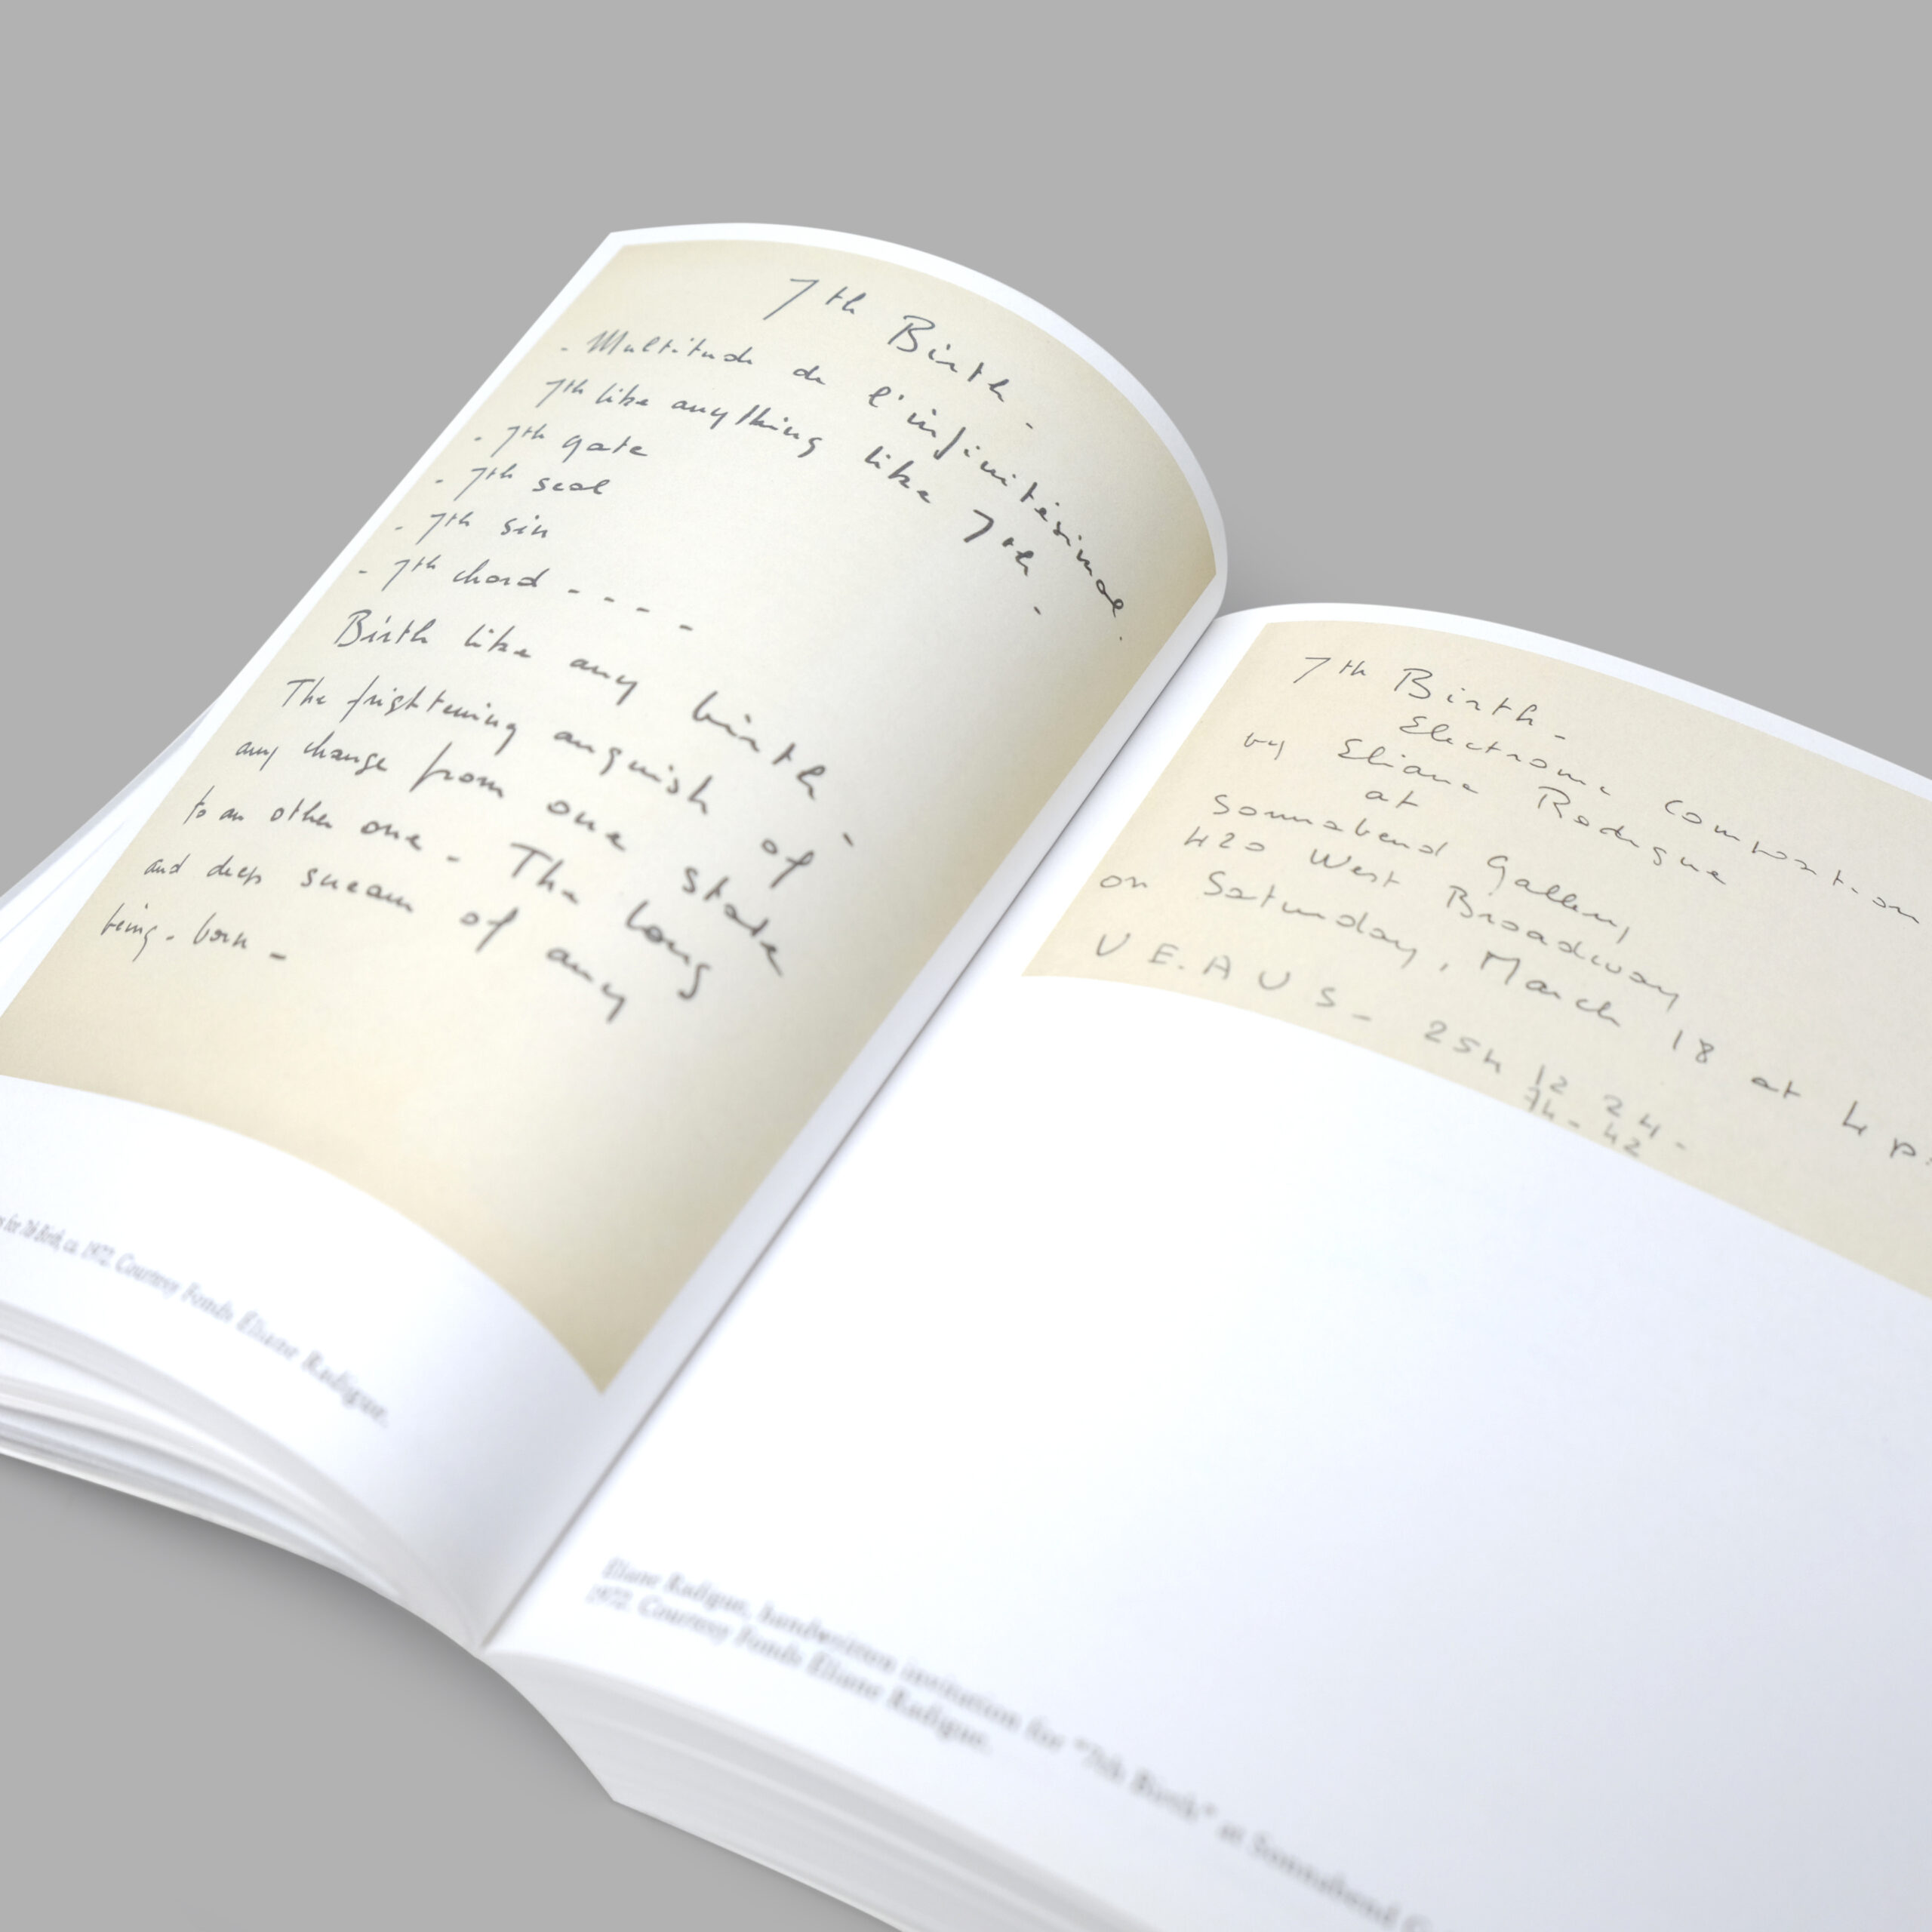 7th Birth -
- Multitude de l'infinitésimal.
7th like anything like 7th -
- 7th gate
- 7th seal
- 7th sin
- 7th chord - - - -
Birth like any birth -
The frightening anguish of
any change from one state
to an other one - The long
and deep of any
being - born -
for 7th Birth, ca. 1972. Courtesy Fonds Éliane Radigue.
7th Birth -
Electronic Composition
by Eliane Radigue
at
Sonnabend Gallery
420 West Broadway
on Saturday, March 18 at 4 p
V E.A U S - 254 12 24 -
74 - 42
Éliane Radigue, handwritten invitation for "7th Birth" at Sonnabend G
1972. Courtesy Fonds Éliane Radigue.